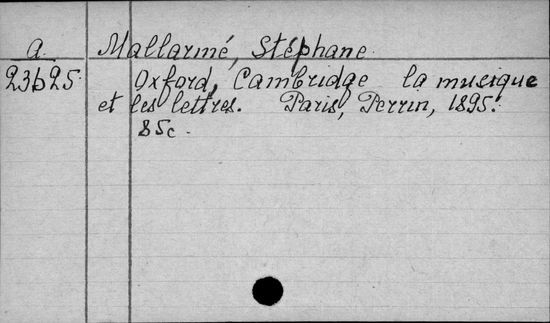 a. Mallarmé, Stéphane.
23625 Oxford, Cambridge la musique
et les lettres. Paris, Perrin, 1895.
85c.